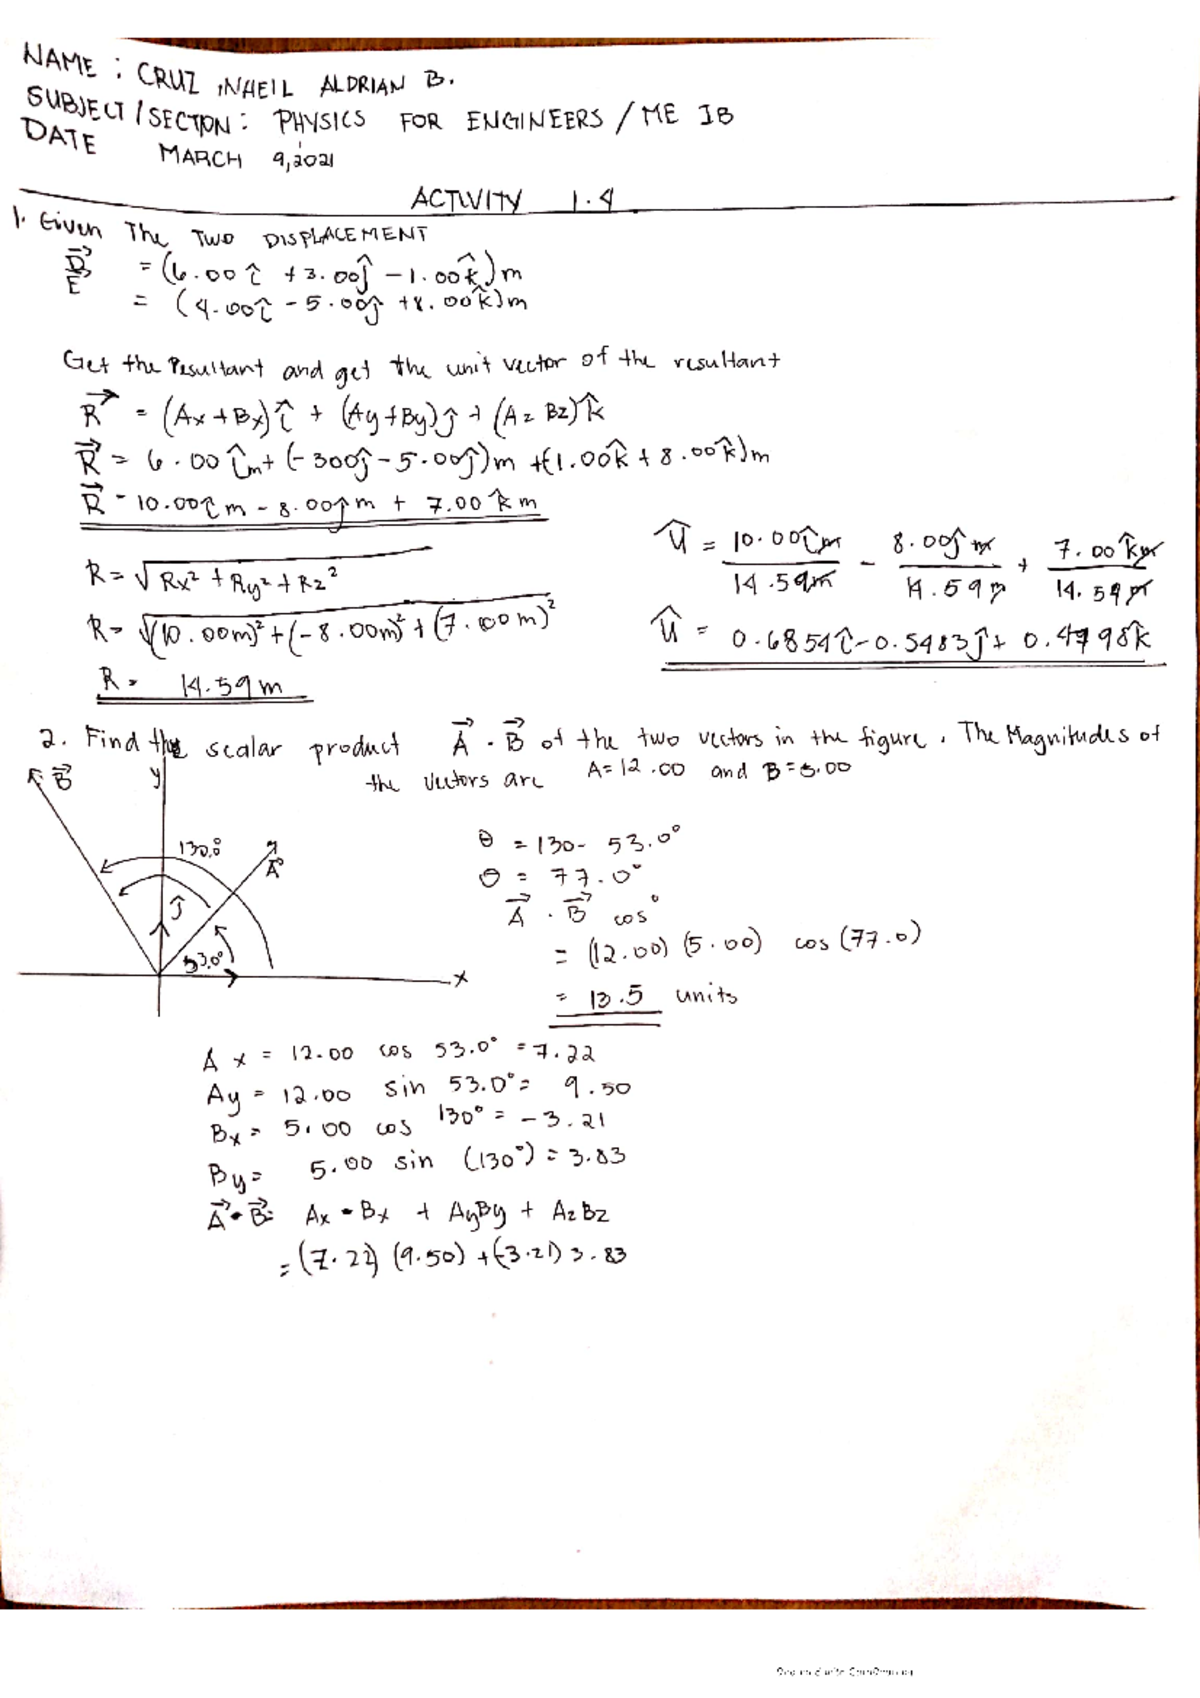 NAME : CRUZ INHEIL ALDRIAN B.
SUBJECT / SECTION : PHYSICS FOR ENGINEERS / ME 1B
DATE MARCH 9, 2021
ACTIVITY 1.4
1. Given The Two DISPLACEMENT
D⃗ = (6.00î + 3.00ĵ - 1.00k̂)m
E⃗ = (4.00î - 5.00ĵ + 8.00k̂)m
Get the Resultant and get the unit vector of the resultant
R⃗ = (Ax + Bx)î + (Ay + By)ĵ + (Az Bz)k̂
R⃗ = 6.00îm + (-300ĵ - 5.00ĵ)m + (1.00k̂ + 8.00k̂)m
R⃗ - 10.00îm - 8.00ĵm + 7.00k̂m
R = √Rx² + Ry² + Rz²
R = √(10.00m)² + (-8.00m)² + (7.00m)²
R = 14.59m
Û = 10.00îm/14.59m - 8.00ĵm/14.59m + 7.00k̂m/14.59m
Û = 0.6854î - 0.5483ĵ + 0.4798k̂
2. Find the scalar product A⃗ · B⃗ of the two vectors in the figure. The Magnitudes of
the vectors are A=12.00 and B=5.00
B⃗
y
130.0°
A⃗
ĵ
53.0°
x
θ = 130 - 53.0°
θ = 77.0°
A⃗ · B⃗ cos°
= (12.00) (5.00) cos (77.0)
= 13.5 units
Ax = 12.00 cos 53.0° = 7.22
Ay = 12.00 sin 53.0° = 9.50
Bx = 5.00 cos 130° = -3.21
By = 5.00 sin (130°) = 3.83
A⃗ · B⃗ = Ax · Bx + AyBy + AzBz
= (7.22) (9.50) + (-3.21) 3.83